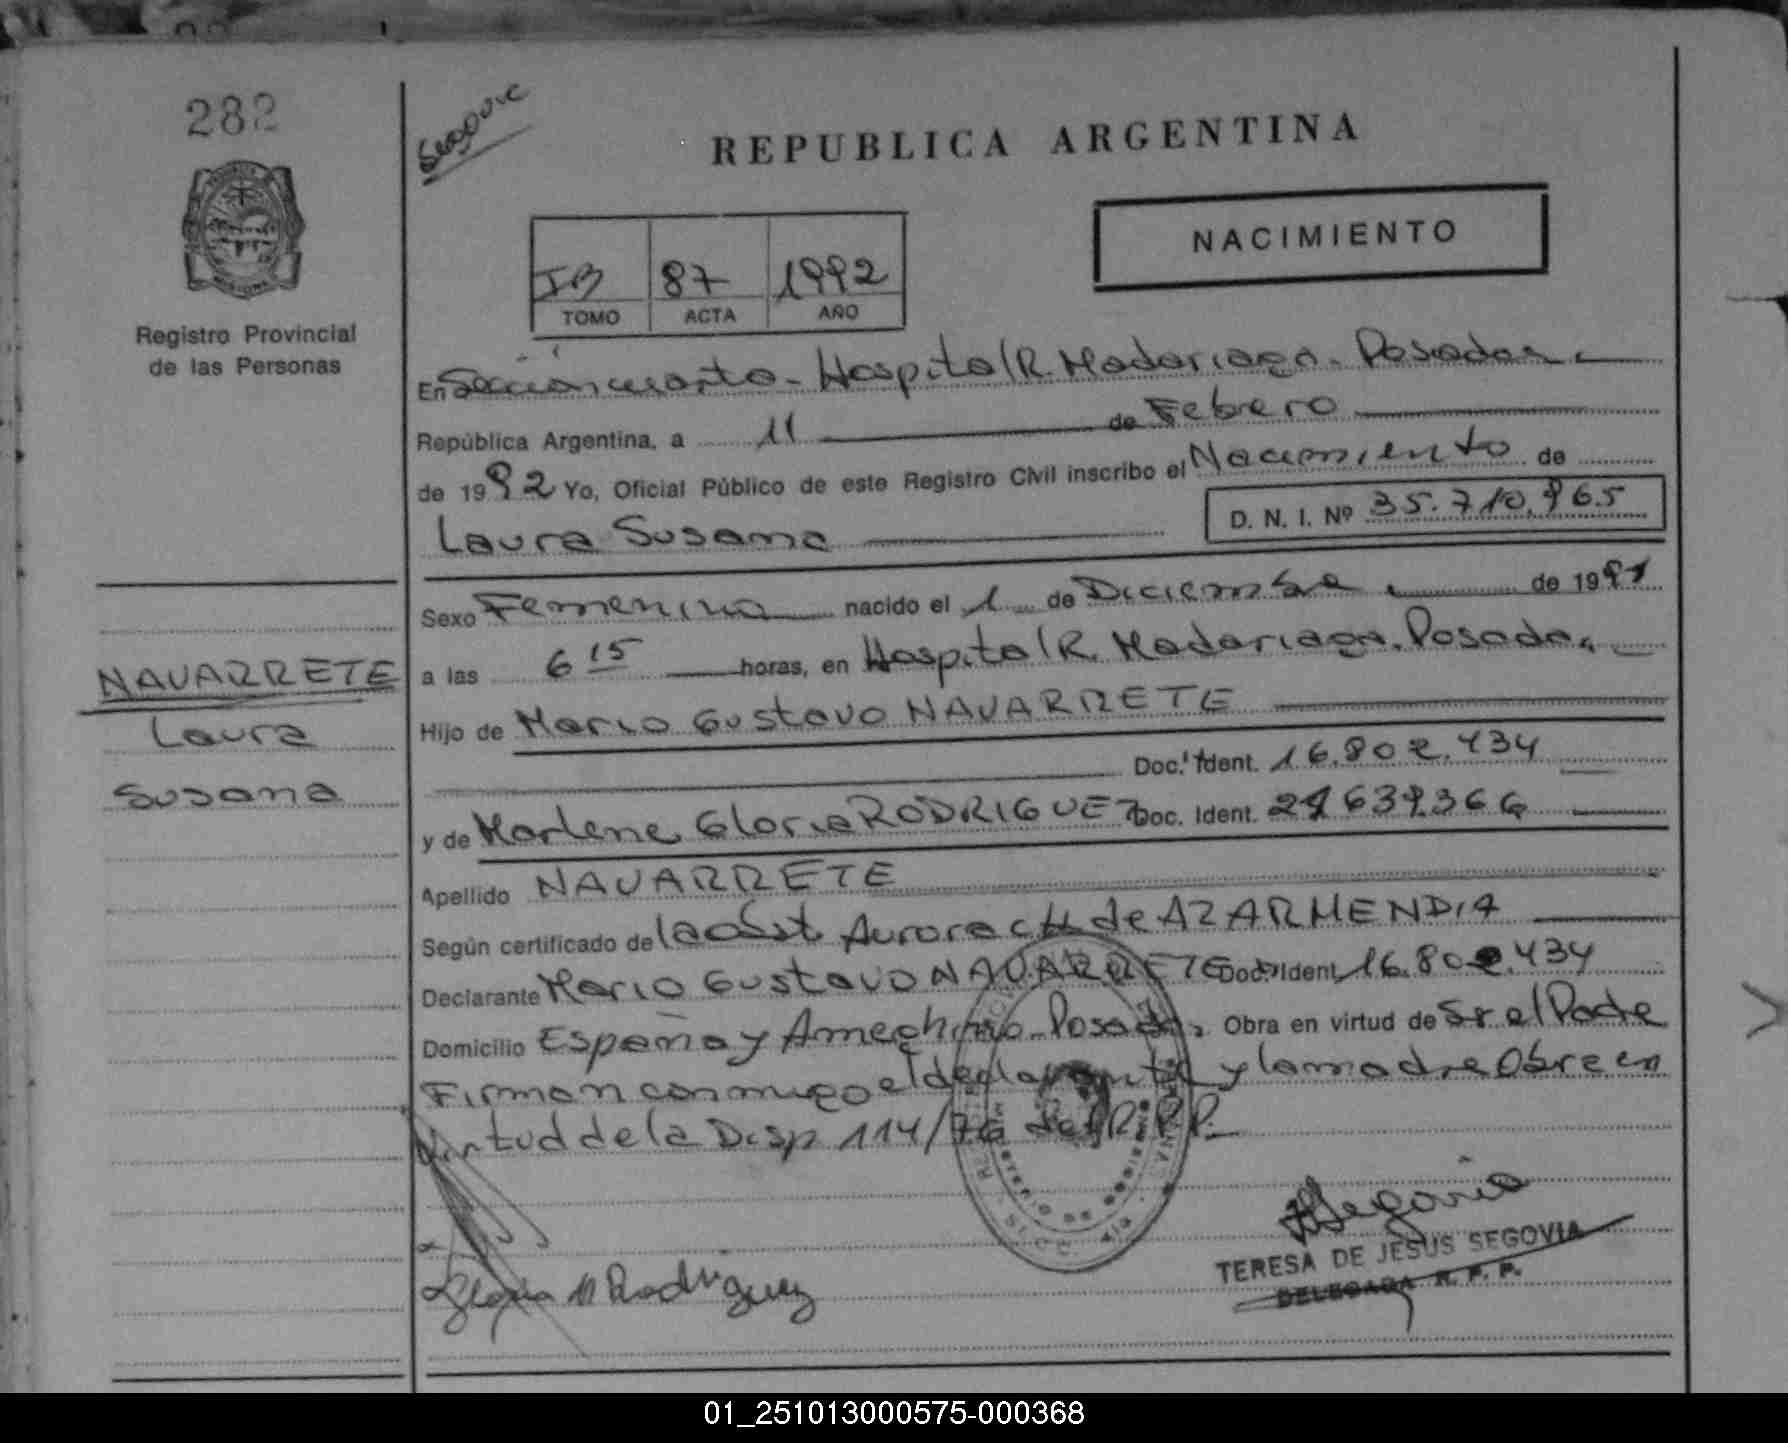 282
Registro Provincial
de las Personas
NAVARRETE
Laura
Susana
REPUBLICA ARGENTINA
NACIMIENTO
IB 87 1992
TOMO ACTA AÑO
En Sección cuarta - Hospital R. Madariaga - Posadas
República Argentina, a 11 de Febrero
de 1992 Yo, Oficial Público de este Registro Civil inscribo el Nacimiento de
Laura Susana D. N. I. Nº 35.710.965
Sexo Femenino nacido el 1 de Diciembre de 1991
a las 6 15 horas, en Hospital R. Madariaga. Posadas
Hijo de Mario Gustavo NAVARRETE
Doc. Ident. 16.802.434
y de Marlene Gloria RODRIGUEZ Doc. Ident. 639366
Apellido NAVARRETE
Según certificado de la Obst Aurora CH de AZARMENDIA
Declarante Mario Gustavo NAVARRETE Doc. Ident. 16.802.434
Domicilio España y Ameghino - Posadas. Obra en virtud de Sr el Padre
Firman conmigo el declarante y la madre Obra en
Virtud de la Disp 114/76 del R.P.P.
Gloria M Rodriguez
Segovia
TERESA DE JESUS SEGOVIA
DELEGADA R. P. P.
01_251013000575-000368